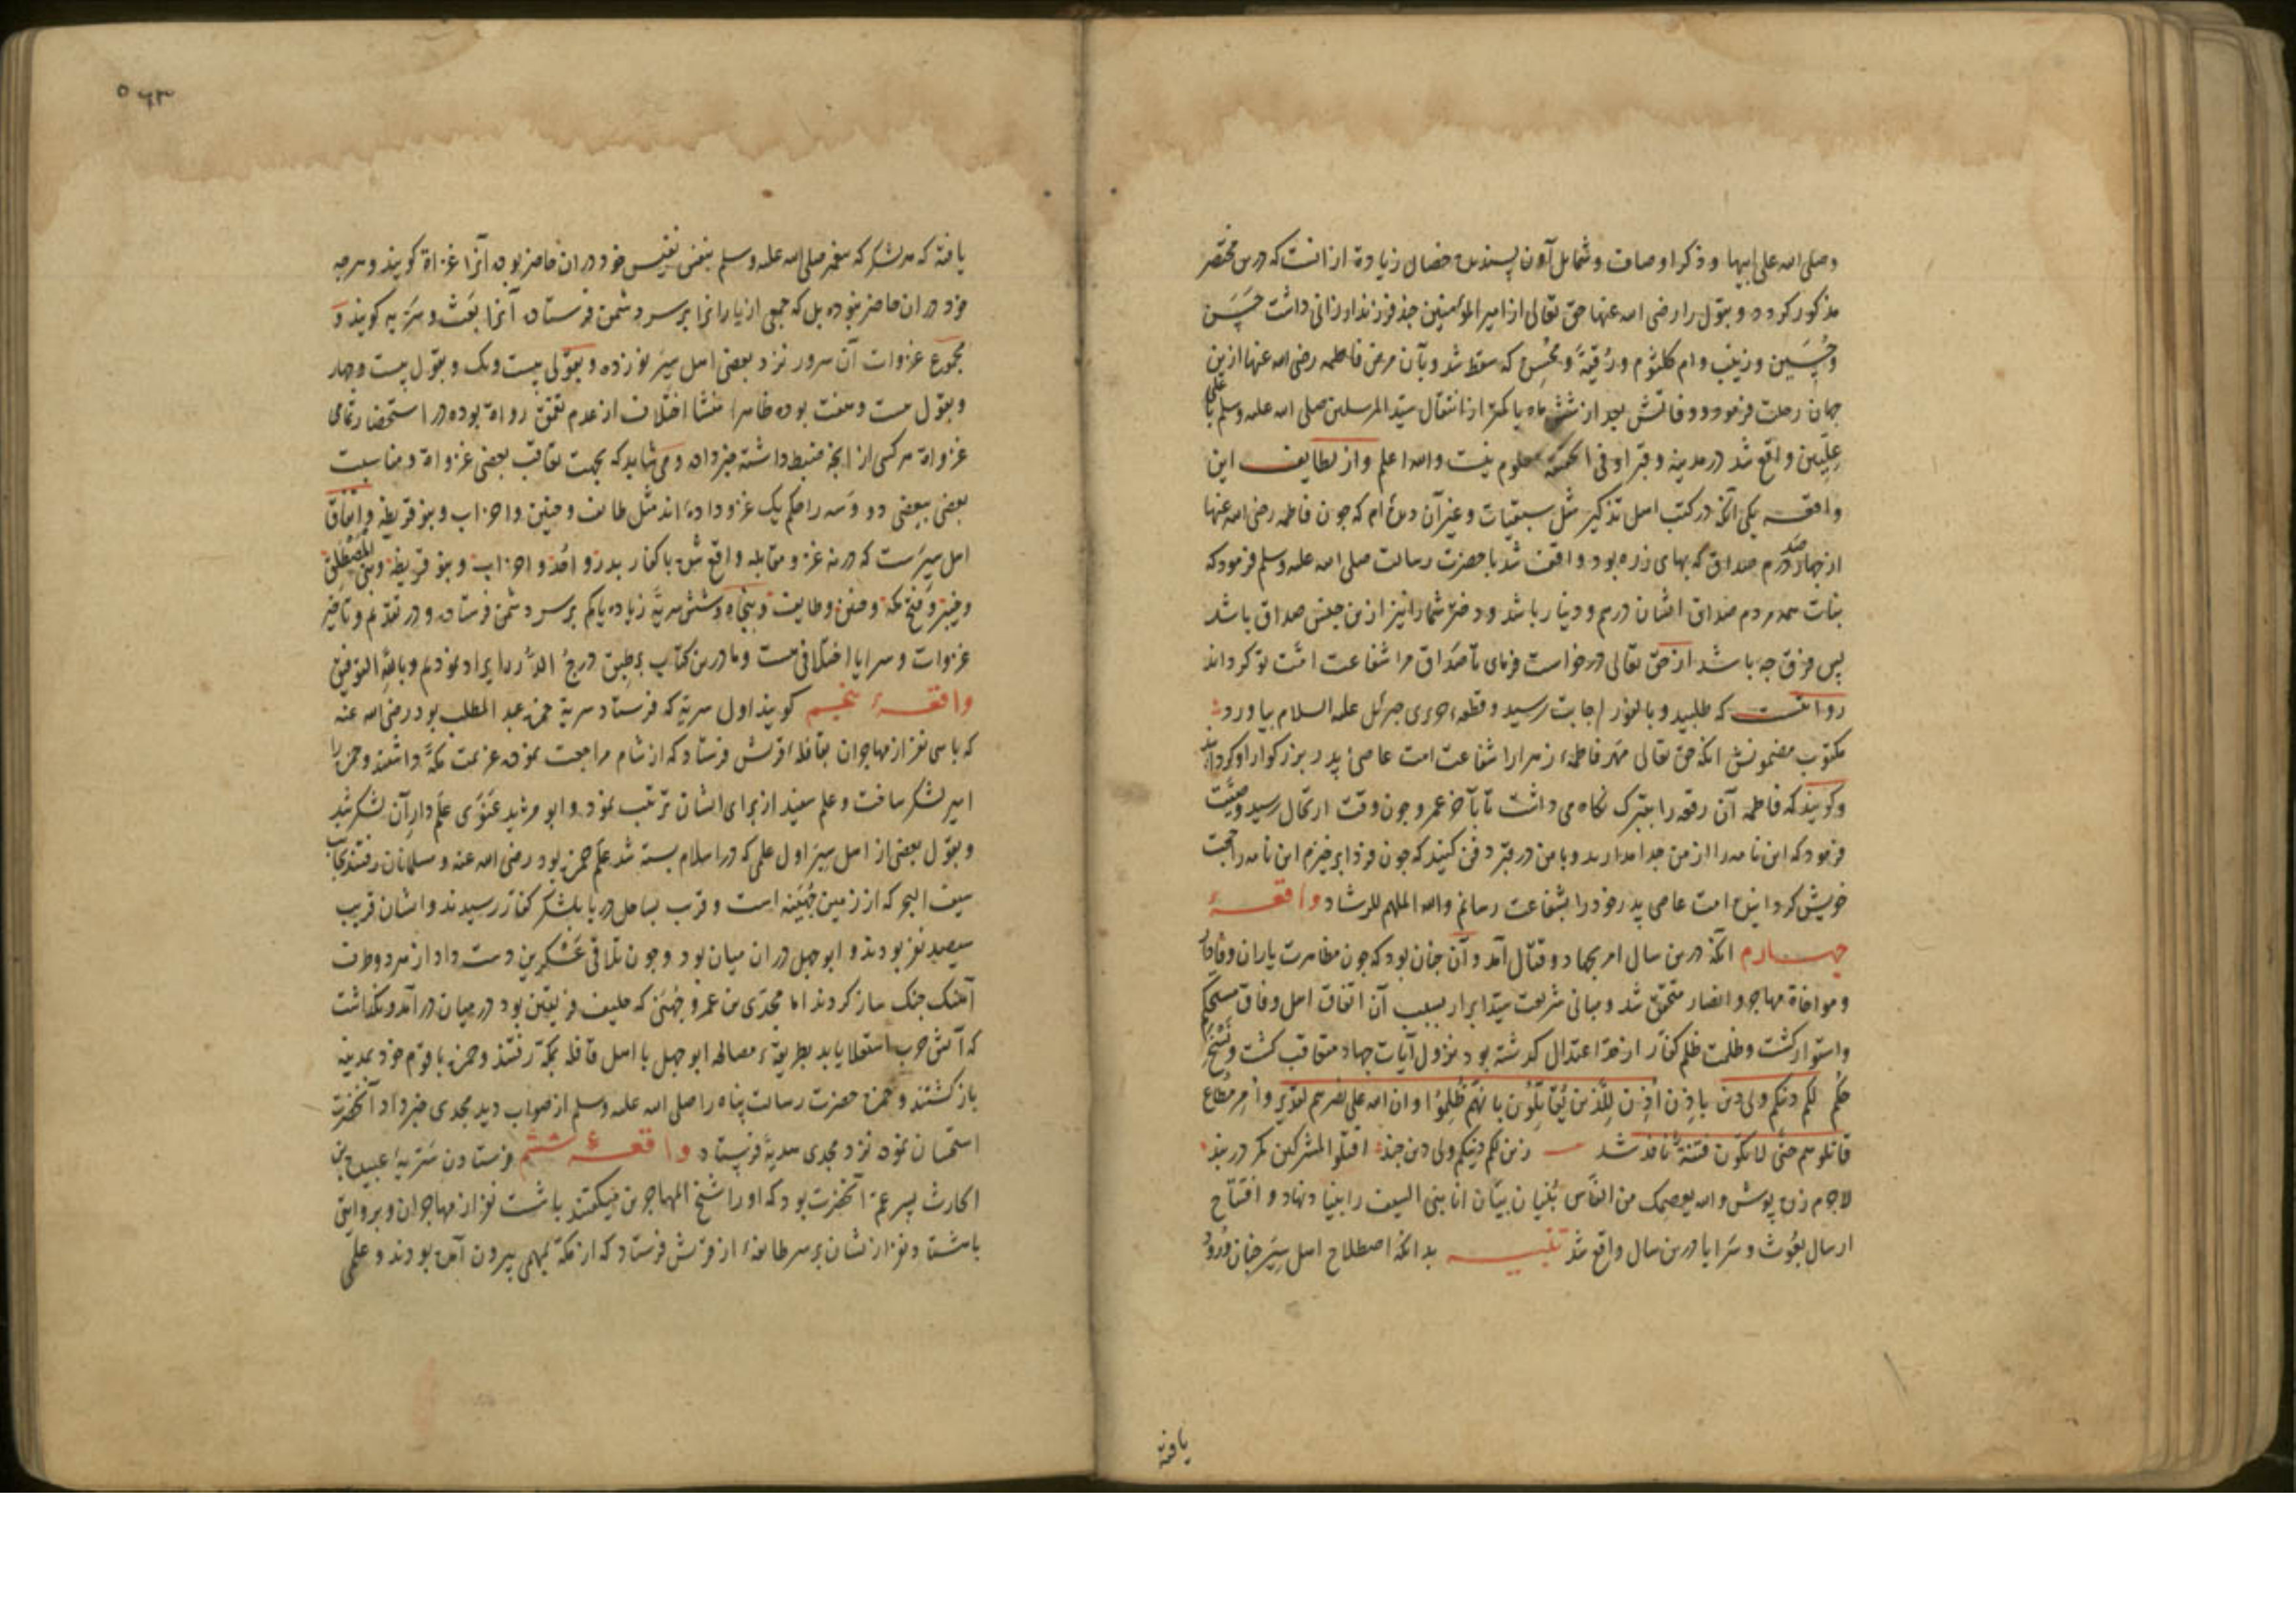 وصلی الله علی ابیها و ذکر اوصاف و شمایل آن پسندیده خصال زیاده از آنست که درین مختصر
مذکور کردد و بتول را رضی الله عنها حق تعالی از امیر المؤمنین چند فرزند ارزانی داشت حَسَن
وحُسَین و زینب و ام کلثوم و رُقیّة و محسِن که سقط شد و بآن مرض فاطمه رضی الله عنها ازین
جهان رحلت فرمود و وفاتش بعد از شش ماه یا کمتر از انتقال سید المرسلین صلی الله علیه وسلم باعلی
علیین واقع شد در مدینه و قبر او فی الحقیقه معلوم نیست والله اعلم و از لطایف این
واقعه یکی آنکه در کتب اهل تذکیر مثل سبعیات و غیر آن دیده ام که چون فاطمه رضی الله عنها
از چهارصد درم صداق که بهای زره بود واقف شد با حضرت رسالت صلی الله علیه وسلم فرمود که
بنات همه مردم صداق ایشان درهم و دینار باشد و دختر شما را نیز ازین جنس صداق باشد
پس فرق چه باشد از حق تعالی درخواست فرمای تا صداق مرا شفاعت امت تو کرداند
روایتست که طلبید و بالفور اجابت رسید و قطعه حریری جبرئیل علیه السلام بیاورد
مکتوب مضمونش آنکه حق تعالی مهر فاطمهٔ زهرا را شفاعت امت عاصی پدر بزرکوار او کردانید
وکویند که فاطمه آن رقعه را بتبرک نکاه می داشت تا بآخر عمر و چون وقت ارتحال رسید وصیت
فرمود که این نامه را از من جدا مدارید و با من در قبر دفن کنید که چون فردا برخیزم این نامه را حجت
خویش کردانیده امت عاصی پدر خود را بشفاعت رسانم والله الملهم للرشاد واقعهٔ
چهارم آنکه درین سال امر بجهاد و قتال آمد و آن چنان بود که چون مظاهرت یاران وفادار
و مواخاة مهاجر و انصار متحقق شد و مبانی شریعت سید ابرار بسبب آن اتفاق اهل وفاق مستحکم
واستوار کشت و ظلمت ظلم کفار از حد اعتدال کذشته بود نزول آیات جهاد متعاقب کشت و نَسْخِ
حُکم لکم دینکم ولی دین باِذن اُذِنَ لِلَّذین یُقاتَلُونَ بِاَنَّهُم ظُلِمُوا و ان الله علی نصرهم لقدیر و امر مطاع
قاتلوهم حتی لا تکون فتنة نافذ شد زین لکم دینکم ولی دین چند اقتلوا المشرکین کمر دربند
لاجرم زره پوش والله یعصمک من الناس بُنیان بیان انا نبی السیف را بنیاد نهاد و افتتاح
ارسال بعوث و سرایا درین سال واقع شد تنبیه بدانکه اصطلاح اهل سیر چنان ورود
یافته
۵۶۳
یافته که هر لشکر که پیغمبر صلی الله علیه وسلم بنفس نفیس خود در ان حاضر بوده آنرا غزاة کویند و هر چه
خود در ان حاضر نبوده بل که جمعی از یارانرا بر سر دشمن فرستاده آنرا بعث و سریه کویند و
مجموع غزوات آن سرور نزد بعضی اهل سیر نوزده و بقولی بیست و یک و بقول بیست و چهار
و بقول بیست و هفت بوده ظاهرا منشا اختلاف از عدم تحقق رواة بوده در استحضار تمامی
غزواة هر کسی از انچه ضبط داشته خبر داده و می شاید که بجهت تعاقب بعضی غزواة و مناسبت
بعضی ببعضی دو و سه را حکم یک غزو داده اند مثل طایف و حنین و احزاب و بنو قریظه و اتفاق
اهل سیرست که در نه غزو مقابله واقع شده با کفار بدر و احُد و احزاب و بنو قریظه و بنی المصطلق
و خیبر و فتح مکه و حنین و طایف و پنجاه و شش سریه زیاده یا کم بر سر دشمن فرستاده و در تقدیم و تاخیر
غزوات و سرایا اختلافی هست و ما درین کتاب بر طبق درجُ الدُرر ایراد نمودیم وبالله التوفیق
واقعهٔ پنجم کویند اول سریه که فرستاد سریه حمزه عبد المطلب بود رضی الله عنه
که با سی نفر از مهاجران بقافلهٔ قریش فرستاد که از شام مراجعت نموده عزیمت مکه داشتند و حمزه را
امیر لشکر ساخت و علم سفید از برای ایشان ترتیب نمود و ابو مرثد غنوی علم دار آن لشکر شد
و بقول بعضی از اهل سیر اول علمی که در اسلام بسته شد علم حمزه بود رضی الله عنه و مسلمانان رفتند بجانب
سیف البحر که از زمین جُهَینه است و قرب بساحل دریا بلشکر کفار رسیدند و ایشان قریب
سیصد نفر بودند و ابو جهل در ان میان بود و چون تلاقی عسکرین دست داد از هر دو طرف
آهنک جنک ساز کردند اما مجدی بن عمرو جهنی که حلیف فریقین بود در میان در آمد و نکذاشت
که آتش حرب اشتعلا یابد بطریقهٔ مصالحه ابو جهل با اهل قافله بمکه رفتند و حمزه با قوم خود بمدینه
باز کشتند و حمزه حضرت رسالت پناه را صلی الله علیه وسلم از صواب دید مجدی خبر داد آنحضرت
استحسان نموده نزد مجدی هدیهٔ فرستاد واقعهٔ ششم فرستادن سریهٔ عبیده بن
الحارث پسر عم آنحضرت بود که او را شیخ المهاجرین میکفتند با شست نفر از مهاجران و بروایتی
با هشتاد نفر از نشان بر سر طایفهٔ از قریش فرستاد که از مکه بمهمی بیرون آمده بودند و علمی